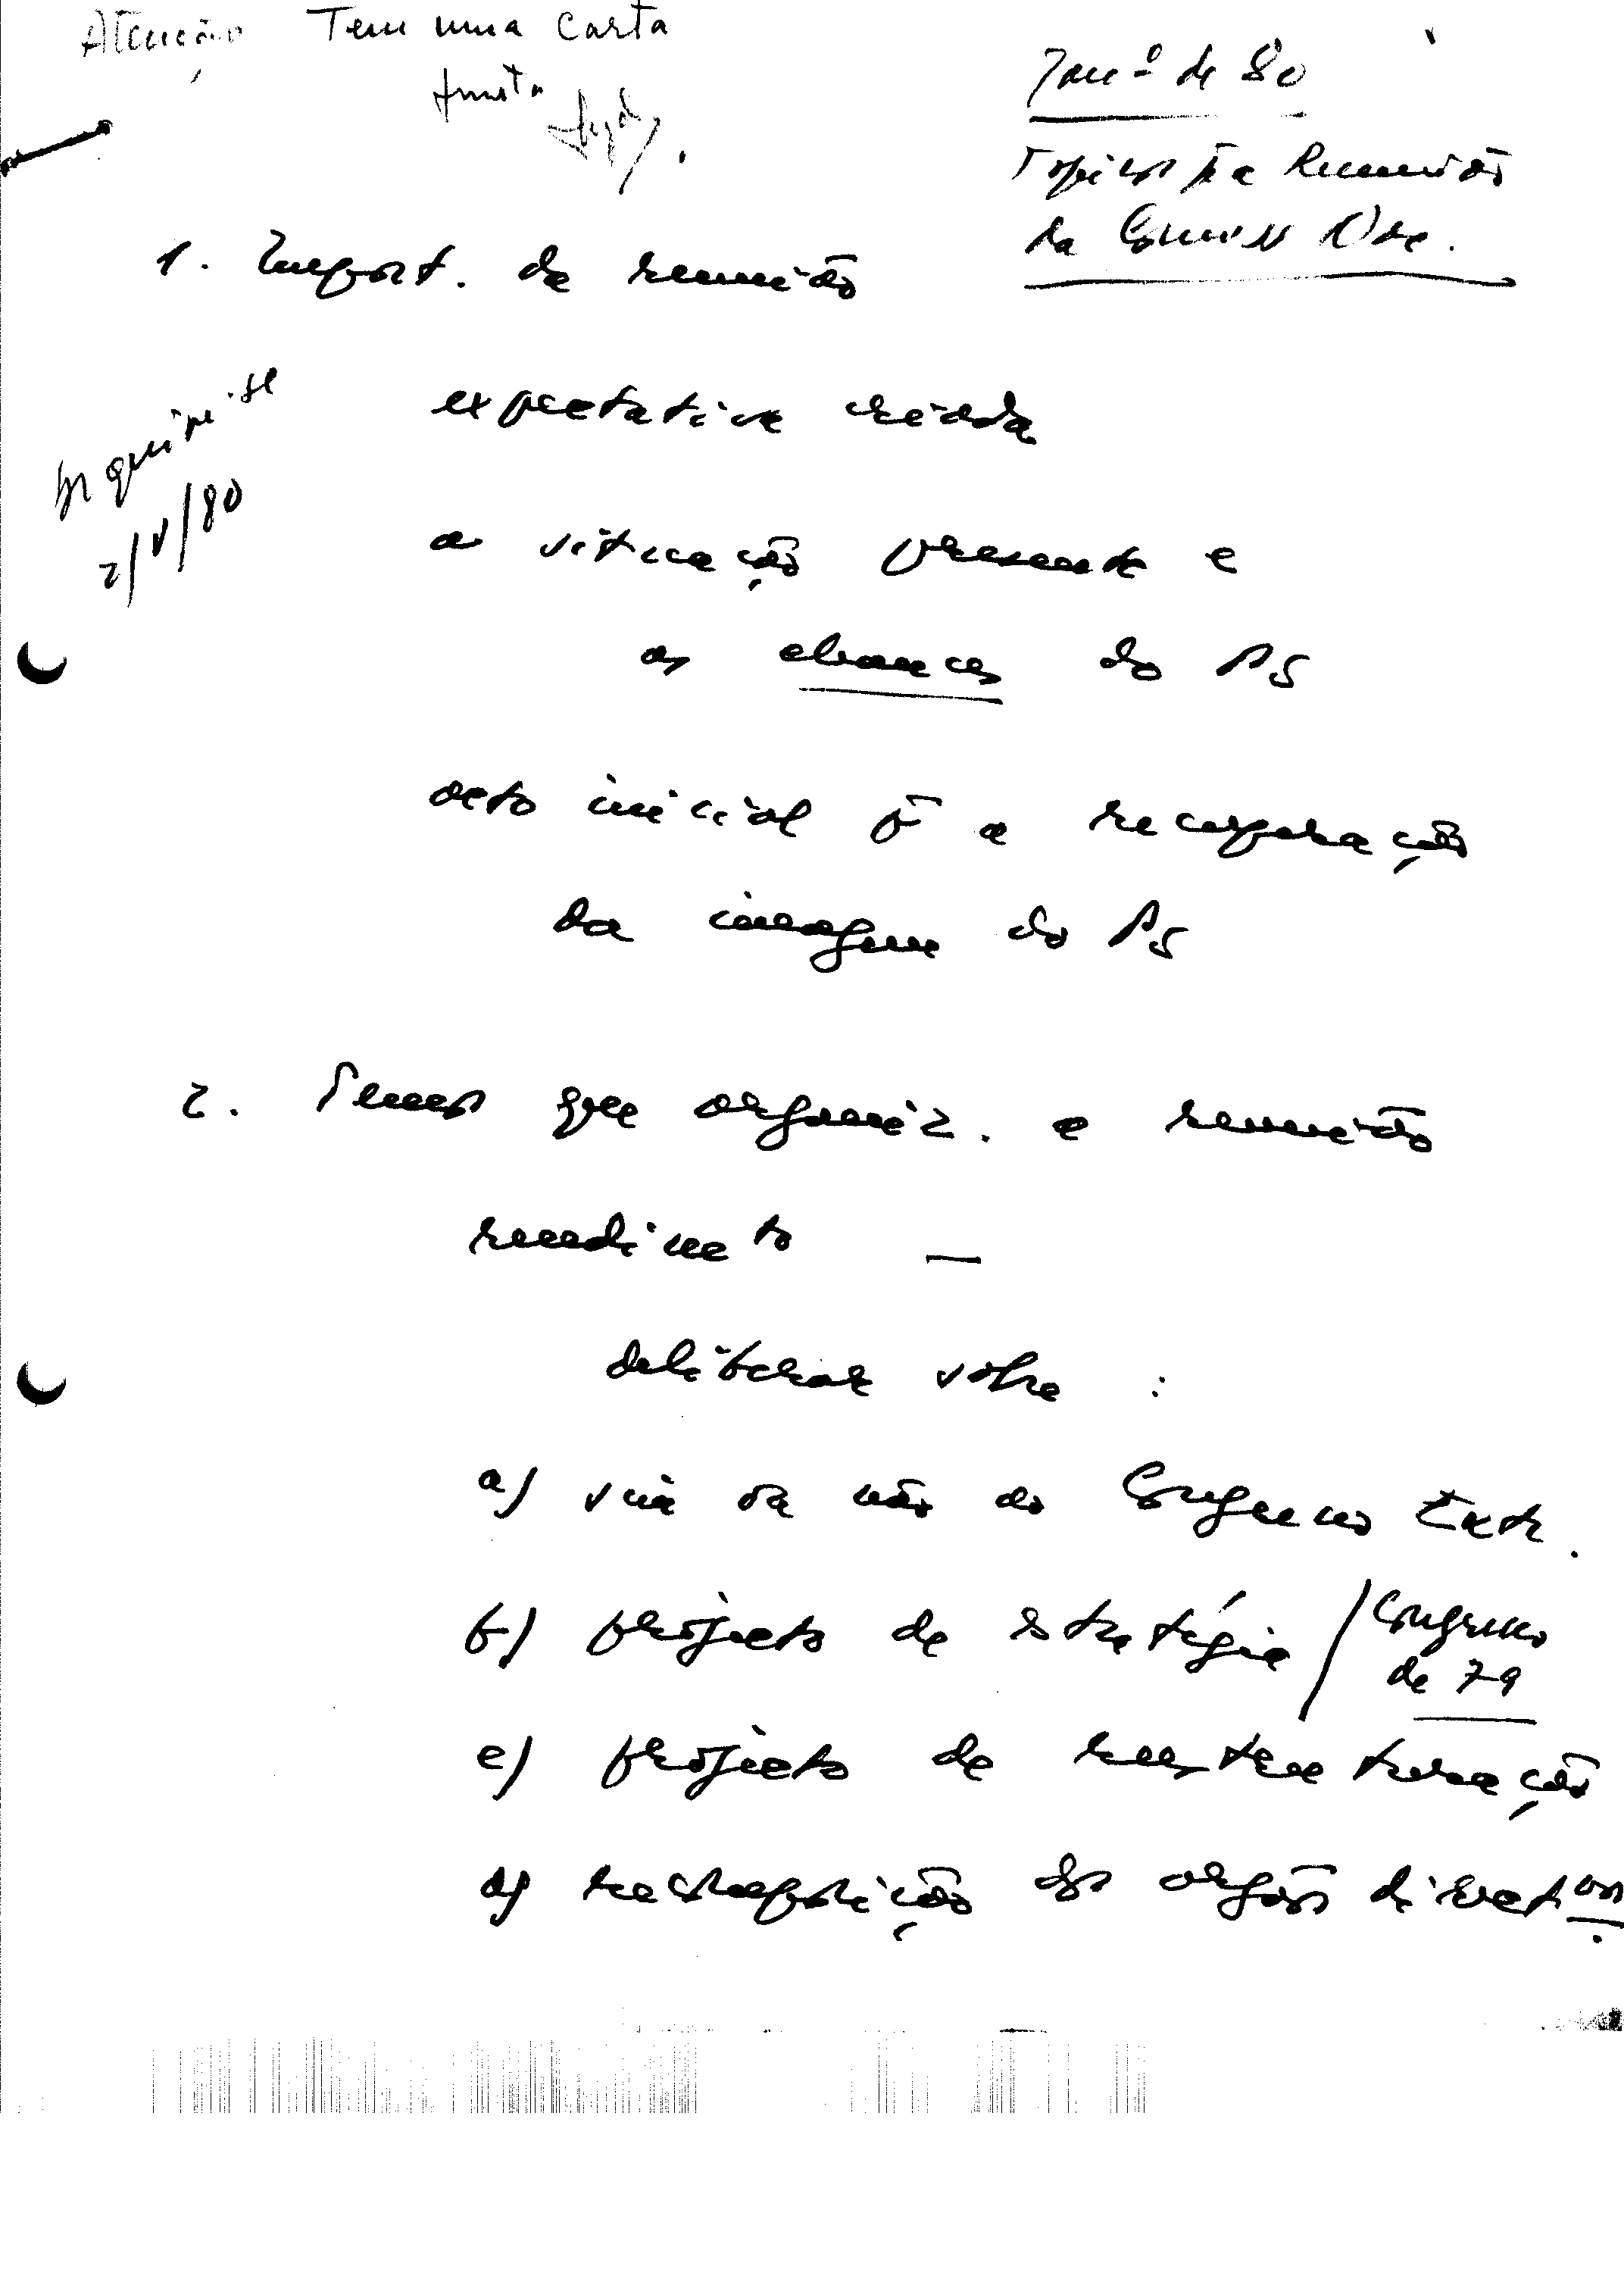 Atenção Tem uma carta
junta
Janº de 80
Topicos pª a Reunião
da Comiss Nac.
1. Import. da reunião
Arquive-se
2/V/80
expectativa criada
a situação presente e
as chances do PS
acto inicial pª a recuperação
da imagem do PS
2. Temos que organiz. a reunião
rendimento —
deliberar sobre :
a) sim ou não ao Congresso Extr.
b) projecto de estratégia / Congresso
de 79
c) projecto de reestruturação
d) recomposição dos orgãos directivos